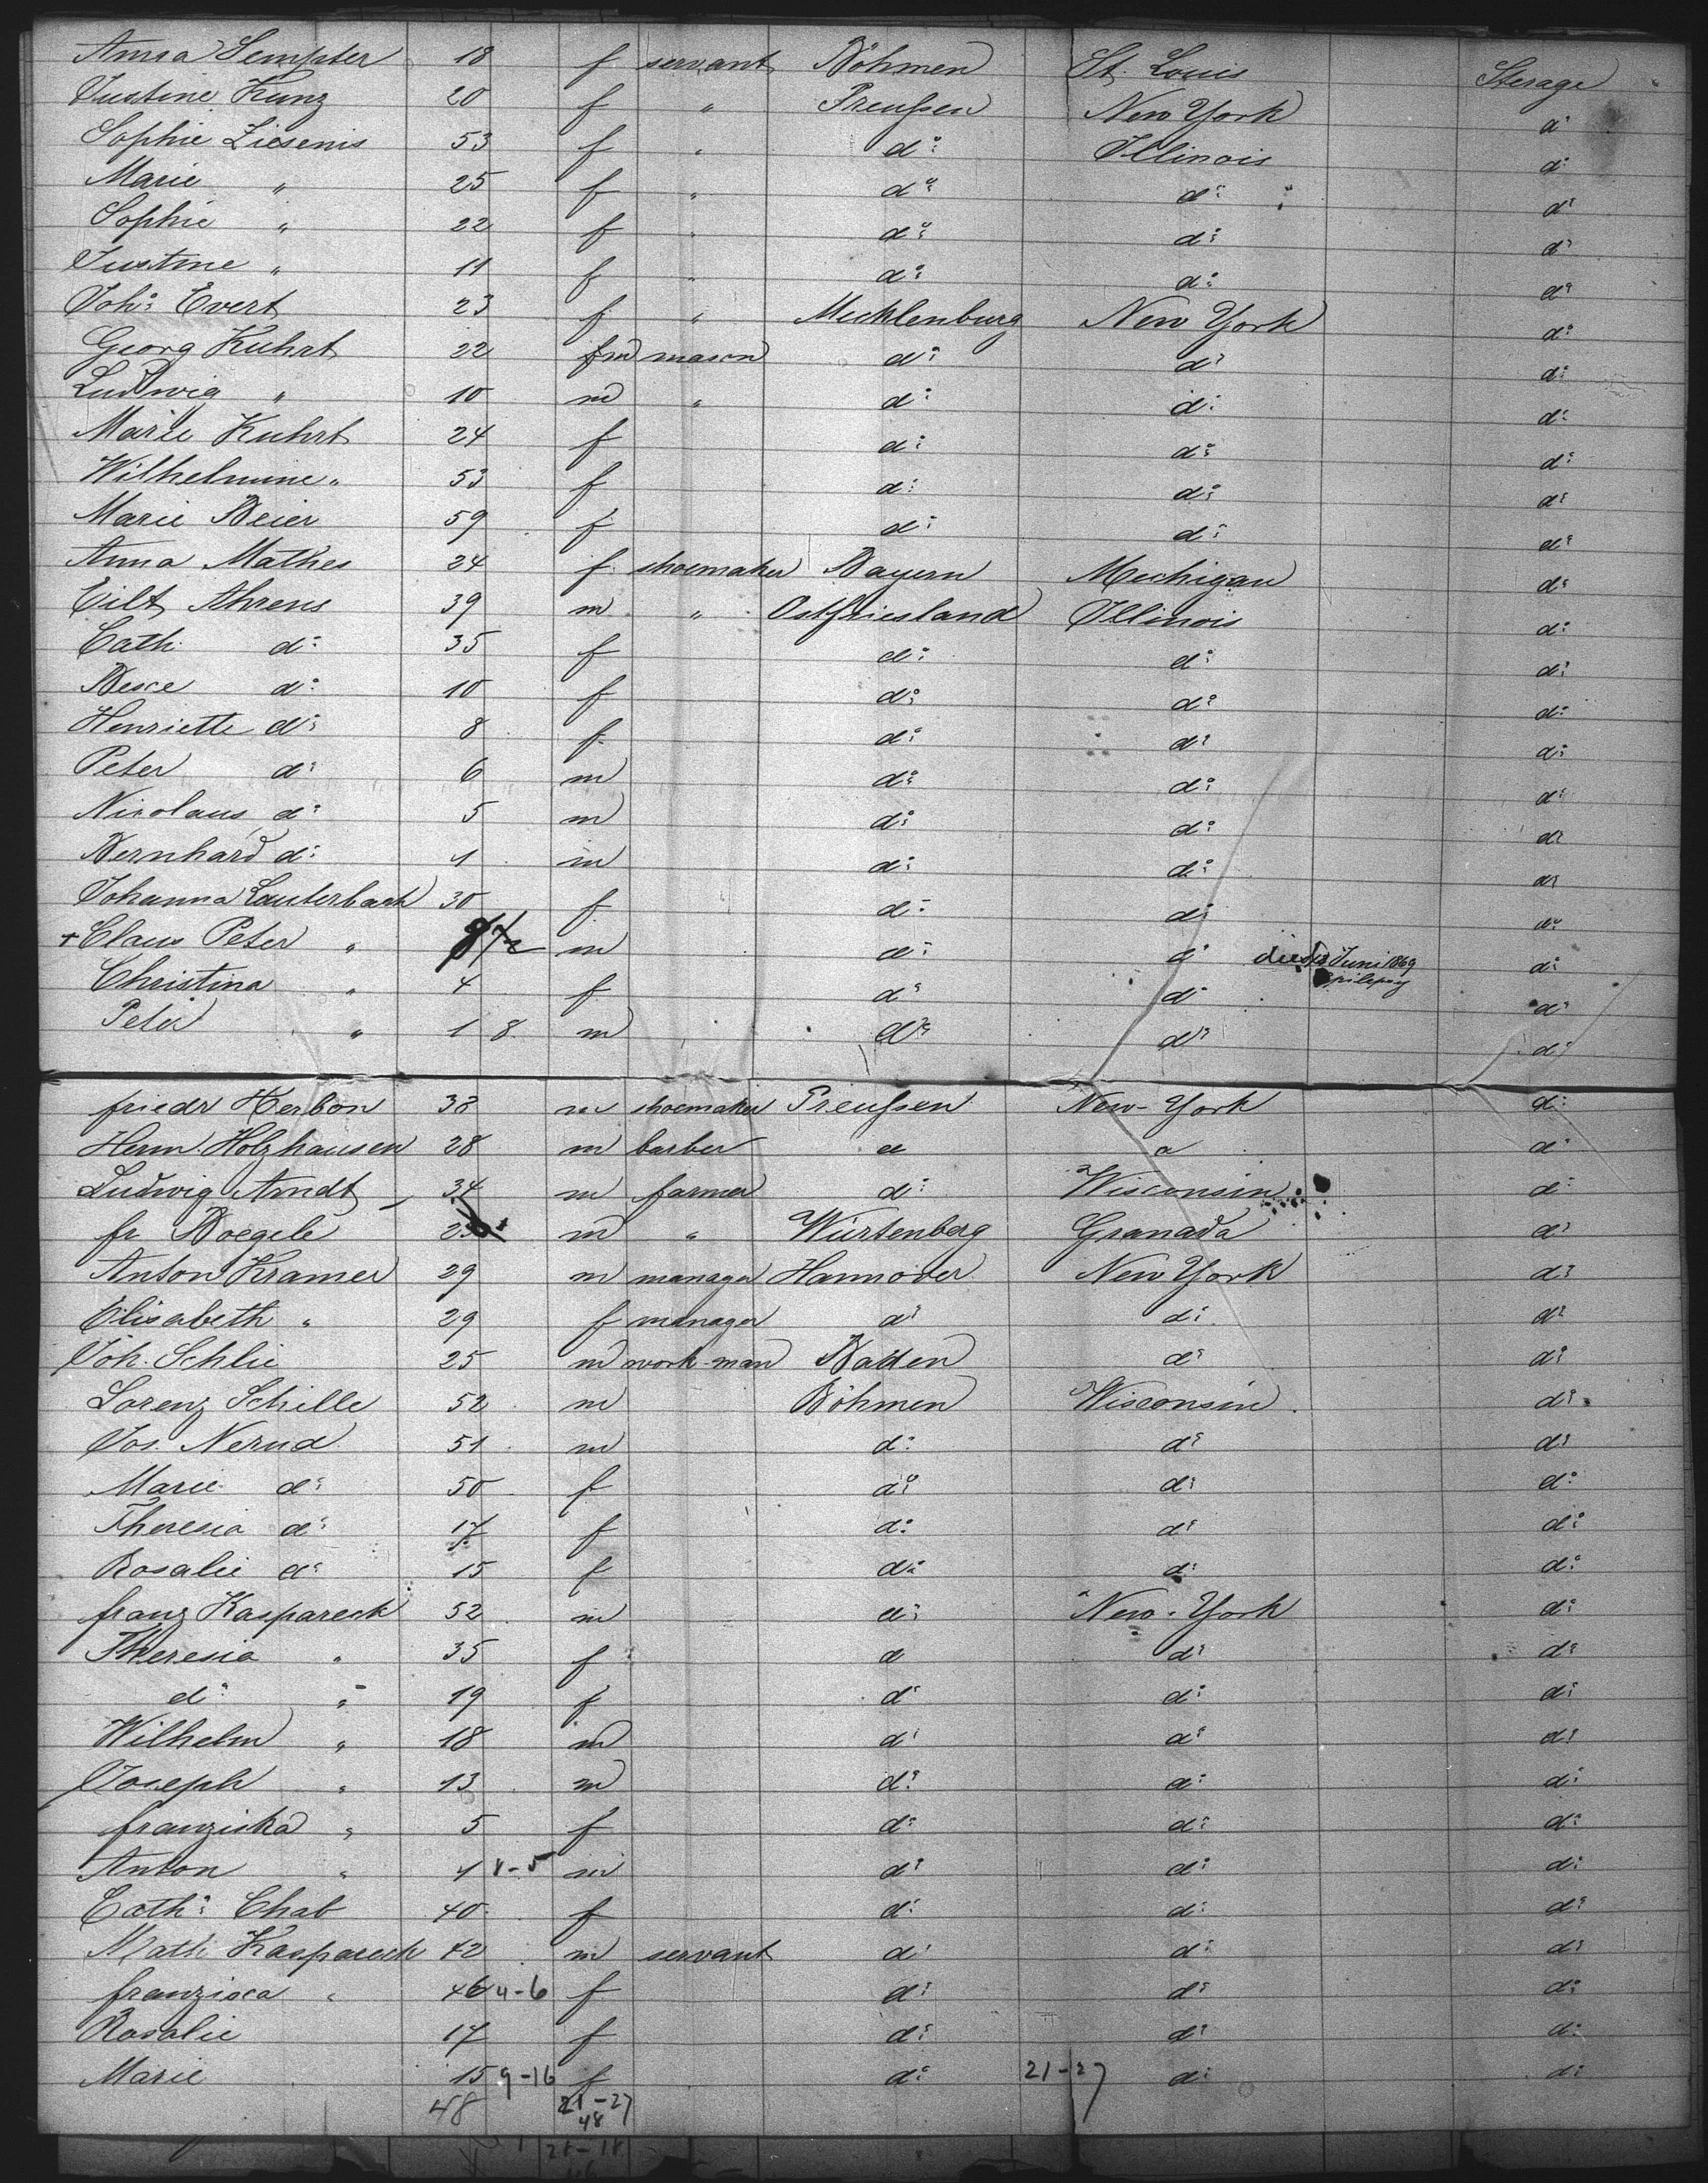 Anna Sempter 18 f servant Böhmen St. Louis Sterage
Justine Kunz 20 f " Preußen New York do
Sophie Ziesenis 53 f " do Illinois do
Marie " 25 f " do do do
Sophie " 22 f " do do do
Justine " 11 f " do do do
Joh: Evert 23 f " Mecklenburg New York do
Georg Kuhrt 22 m mason do do do
Ludwig " 10 m " do do do
Marie Kuhrt 24 f do do do
Wilhelmine " 53 f do do do
Marie Beier 59 f do do do
Anna Mathes 24 f shoemaker Bayern Mechigan do
Eilt Ahrens 39 m " Ostfriesland Illinois do
Cath. do 35 f do do do
Besce do 10 f do do do
Henriette do 8 f do do do
Peter do 6 m do do do
Nicolaus do 5 m do do do
Bernhard do 1 m do do do
Johanna Lauterbach 30 f do do do
+ Claus Peter " m do do died Juni 1869 do
epilepsy
Christina " 4 f do do do
Peter " 1 8 m do do do
friedr Herbon 38 m shoemaker Preußen New-York do
Herm. Holzhausen 28 m barber do do do
Ludwig Arndt 34 m farmer do Wisconsin do
fr Boegele m " Würtenberg Granada do
Anton Kramer 29 m manager Hannover New York do
Elisabeth " 29 f manager do do do
Joh. Schlie 25 m work-man Baden do do
Lorenz Schille 52 m Böhmen Wisconsin do
Jos. Nerud 51 m do do do
Marie do 50 f do do do
Theresia do 17 f do do do
Rosalie do 15 f do do do
franz Kaspareck 52 m do New-York do
Theresia " 35 f do do do
do " 19 f do do do
Wilhelm " 18 m do do do
Joseph " 13 m do do do
franziska " 5 f do do do
Anton " 4 8-5 m do do do
Cath: Chab 40 f do do do
Math Kaspareck 42 m servant do do do
franzisca " 46 4-6 f do do do
Rosalie 17 f do do do
Marie 15 9-16 f do 21-27 do do
48 21-27
48